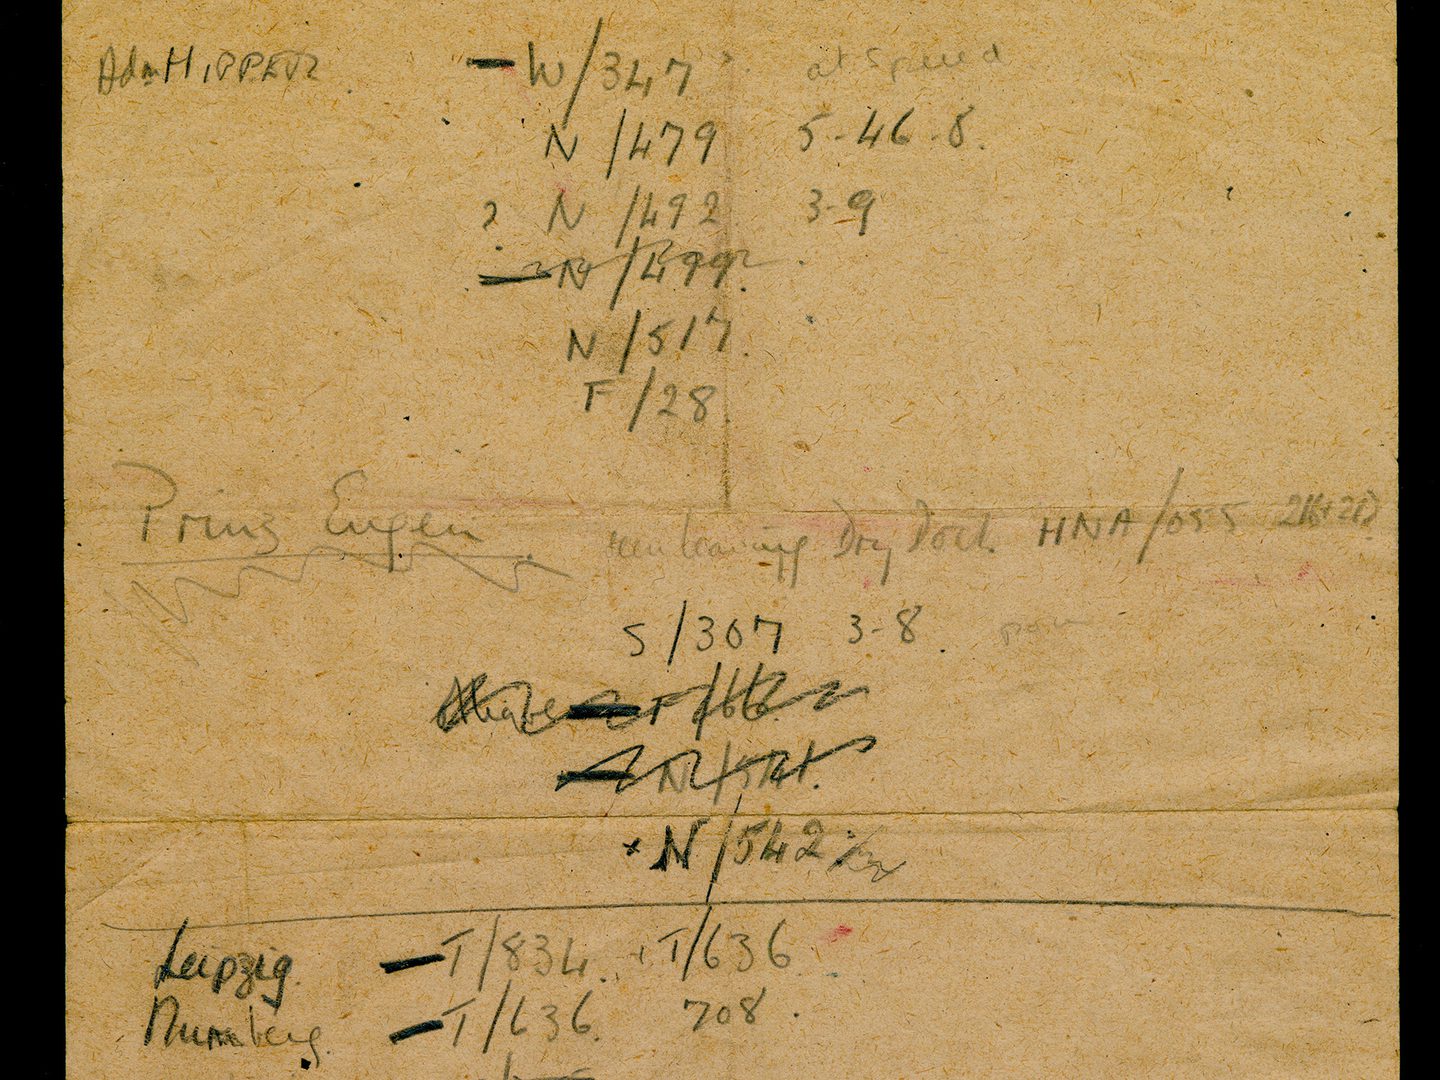 Adm HIPPER - W/347 at Speed
N/479 5-46-8.
? N/492 3-9
- N/499.
N/517.
F/28.
Prinz Eugen seen leaving Dry Dock. HNA/055
S/307 3-8.
- F/66
- N/
x N/542
Leipzig. - T/834. T/636
Nurnberg. - T/636. 708.